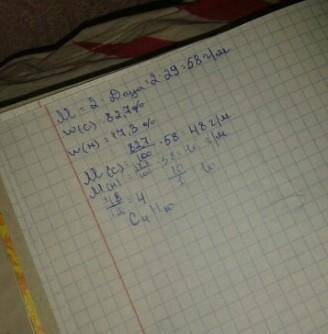 M = 2 · Dвозд = 2 · 29 = 58 г/м
w(c) = 82,7%
w(н) = 17,3 %
M(c) = 82,7/100 · 58 = 48 г/м
M(н) = 17,3/100 · 58 = 10 г/м
48/12 = 4   10/1   10
C₄ H₁₀